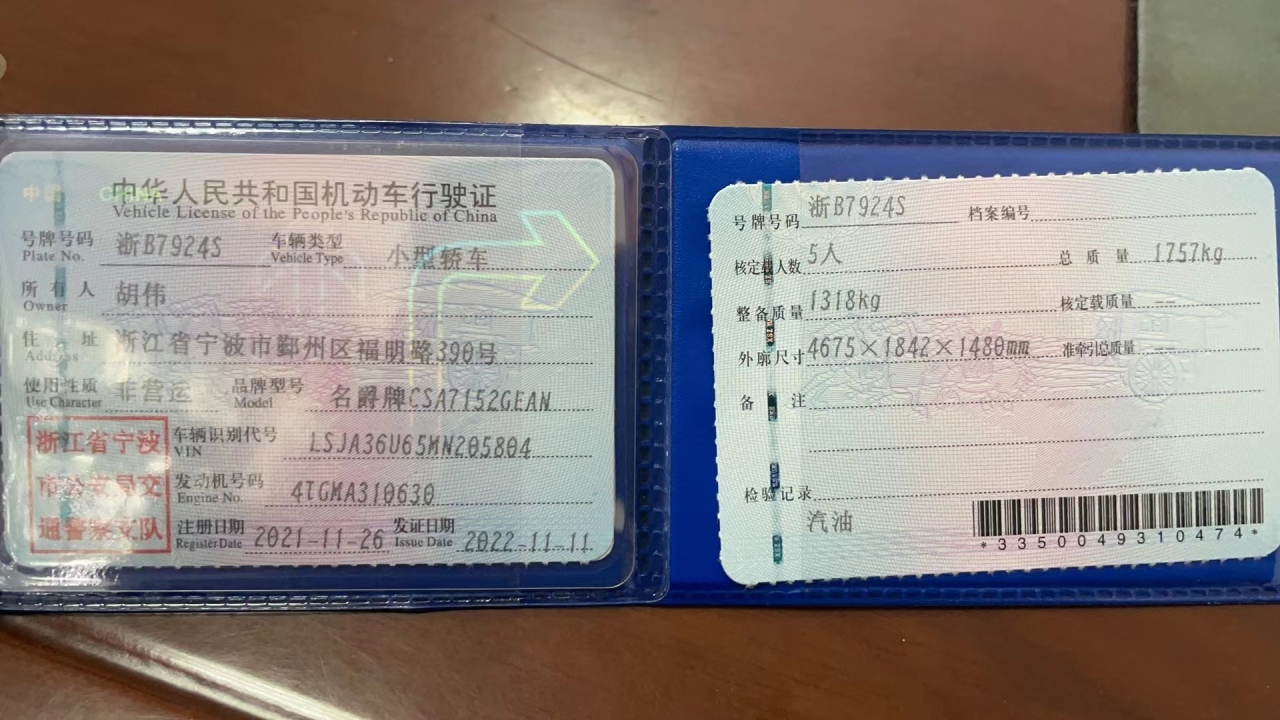 中国 CHINA
中华人民共和国机动车行驶证
Vehicle License of the People's Republic of China
号牌号码 浙B7924S 车辆类型 小型轿车
Plate No. Vehicle Type
所有人 胡伟
Owner
住址 浙江省宁波市鄞州区福明路390号
Address
使用性质 非营运 品牌型号 名爵牌CSA7152GEAN
Use Character Model
浙江省宁波
市公安局交
通警察支队
车辆识别代号 LSJA36U65MN205804
VIN
发动机号码 4TGMA310630
Engine No.
注册日期 2021-11-26 发证日期 2022-11-11
Register Date Issue Date
号牌号码 浙B7924S 档案编号
核定载人数 5人 总质量 1757kg
整备质量 1318kg 核定载质量 --
外廓尺寸 4675×1842×1480mm 准牵引总质量 --
备注
检验记录
汽油
*3350049310474*